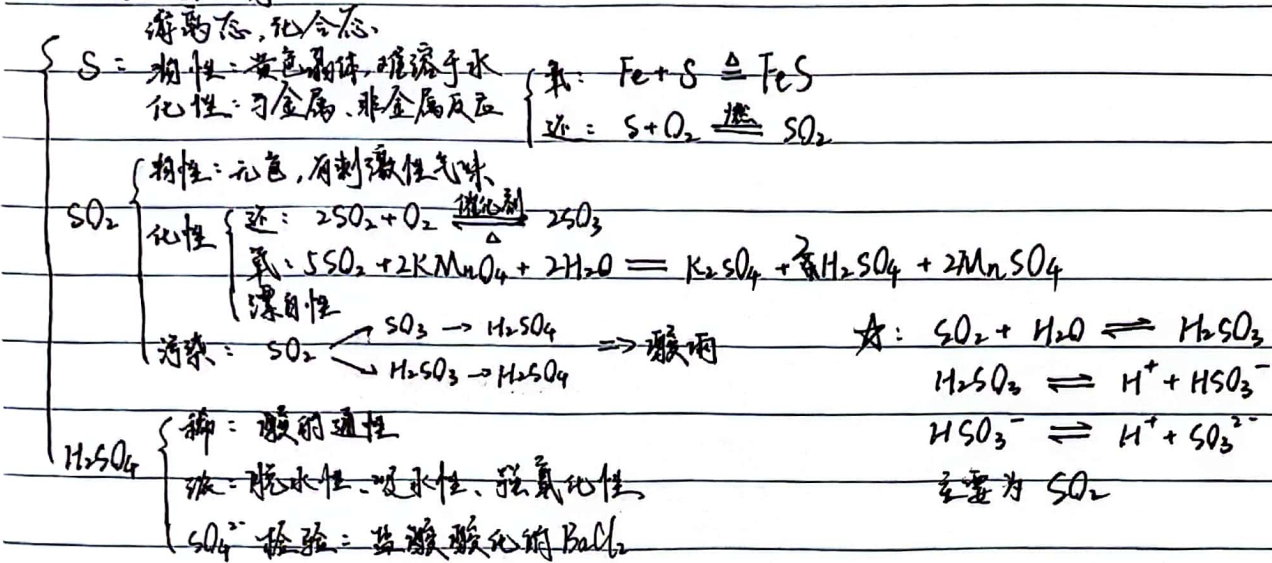 游离态,化合态、
S: 物性:黄色晶体,难溶于水
化性:与金属、非金属反应
氧: Fe+S ≜ FeS
还: S+O₂ 燃 SO₂
SO₂ 物性:无色,有刺激性气味、
化性 还: 2SO₂+O₂ 催化剂 ⇌ △ 2SO₃
氧: 5SO₂+2KMnO₄+2H₂O = K₂SO₄+2H₂SO₄+2MnSO₄
漂白性
污染: SO₂ → SO₃ → H₂SO₄
→ H₂SO₃ → H₂SO₄
⇒ 酸雨
☆: SO₂ + H₂O ⇌ H₂SO₃
H₂SO₃ ⇌ H⁺ + HSO₃⁻
HSO₃⁻ ⇌ H⁺ + SO₃²⁻
主要为 SO₂
H₂SO₄ 稀:酸的通性
浓:脱水性、吸水性、强氧化性、
SO₄²⁻ 检验:盐酸酸化的BaCl₂